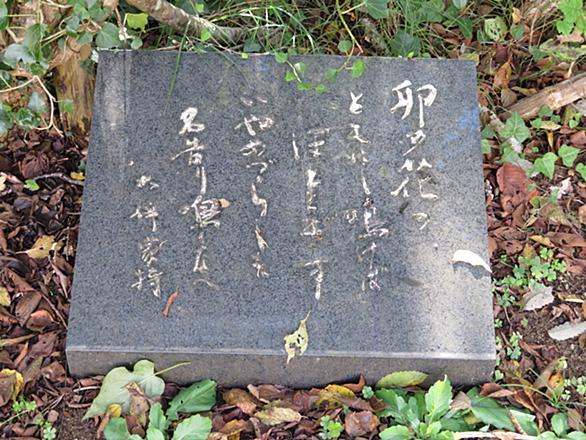 卯の花の
ともにし鳴けば
ほとゝぎす
いやめづらしも
名告り鳴くなへ
大伴家持